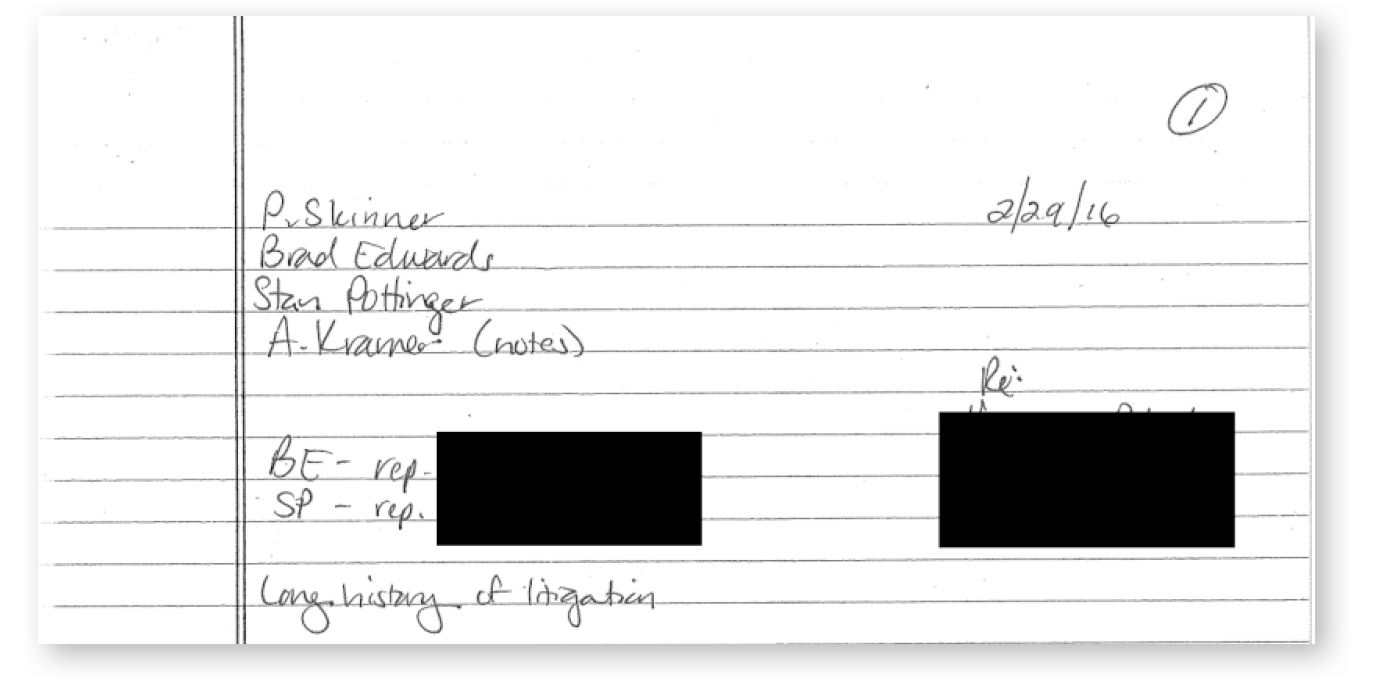 ①
P. Skinner
2/29/16
Brad Edwards
Stan Pottinger
A. Kramer (notes)
Re:
BE - rep.
SP - rep.
Long history of litigation